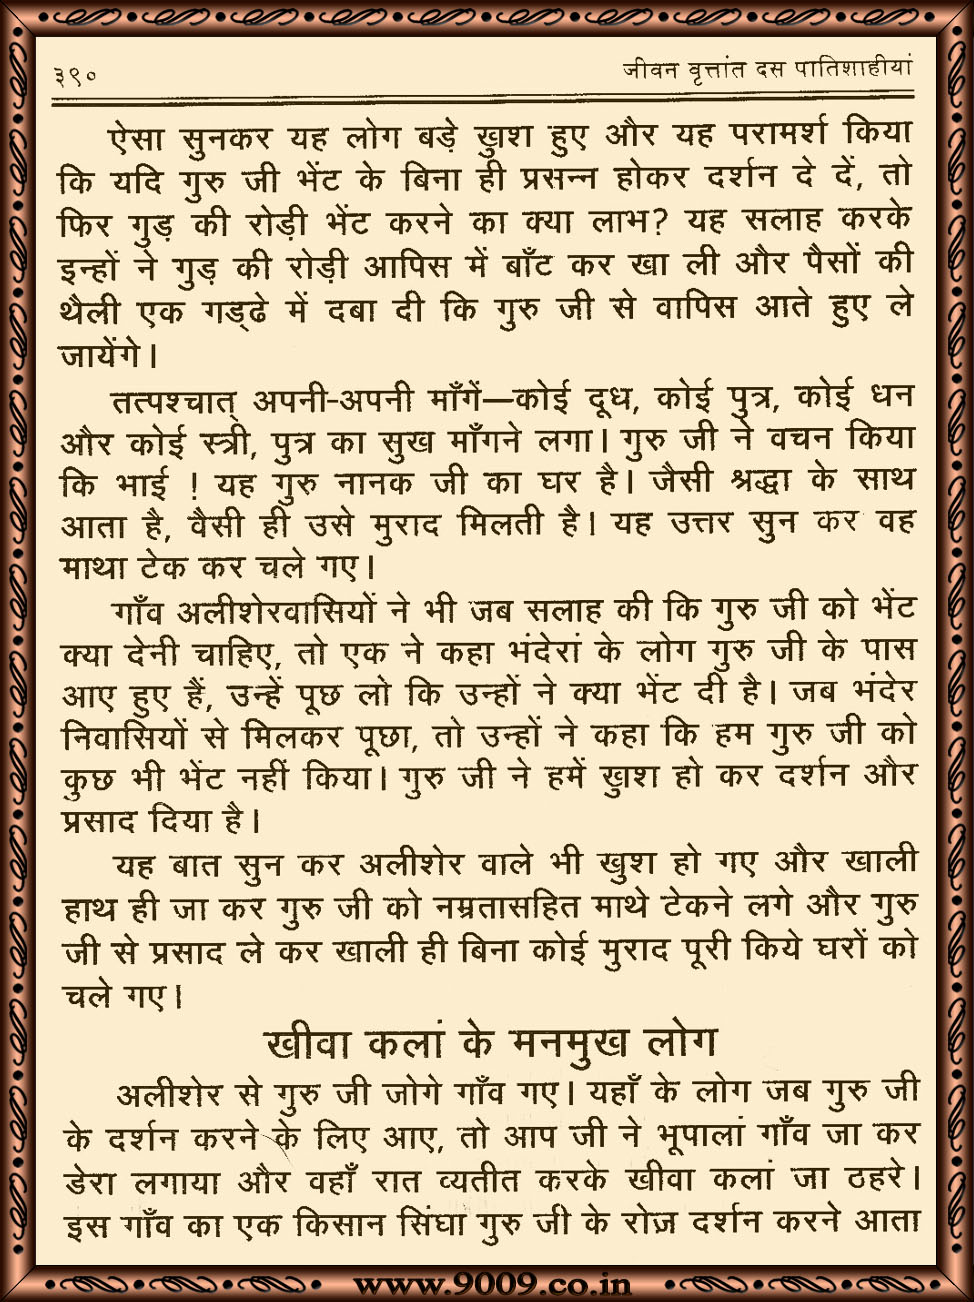 ३९० जीवन वृत्तांत दस पातिशाहीयां
ऐसा सुनकर यह लोग बड़े खुश हुए और यह परामर्श किया
कि यदि गुरु जी भेंट के बिना ही प्रसन्न होकर दर्शन दे दें, तो
फिर गुड़ की रोड़ी भेंट करने का क्या लाभ? यह सलाह करके
इन्हों ने गुड़ की रोड़ी आपिस में बाँट कर खा ली और पैसों की
थैली एक गड्ढे में दबा दी कि गुरु जी से वापिस आते हुए ले
जायेंगे।
तत्पश्चात् अपनी-अपनी माँगें—कोई दूध, कोई पुत्र, कोई धन
और कोई स्त्री, पुत्र का सुख माँगने लगा। गुरु जी ने वचन किया
कि भाई ! यह गुरु नानक जी का घर है। जैसी श्रद्धा के साथ
आता है, वैसी ही उसे मुराद मिलती है। यह उत्तर सुन कर वह
माथा टेक कर चले गए।
गाँव अलीशेरवासियों ने भी जब सलाह की कि गुरु जी को भेंट
क्या देनी चाहिए, तो एक ने कहा भंदेरां के लोग गुरु जी के पास
आए हुए हैं, उन्हें पूछ लो कि उन्हों ने क्या भेंट दी है। जब भंदेर
निवासियों से मिलकर पूछा, तो उन्हों ने कहा कि हम गुरु जी को
कुछ भी भेंट नहीं किया। गुरु जी ने हमें खुश हो कर दर्शन और
प्रसाद दिया है।
यह बात सुन कर अलीशेर वाले भी खुश हो गए और खाली
हाथ ही जा कर गुरु जी को नम्रतासहित माथे टेकने लगे और गुरु
जी से प्रसाद ले कर खाली ही बिना कोई मुराद पूरी किये घरों को
चले गए।
खीवा कलां के मनमुख लोग
अलीशेर से गुरु जी जोगे गाँव गए। यहाँ के लोग जब गुरु जी
के दर्शन करने के लिए आए, तो आप जी ने भूपालां गाँव जा कर
डेरा लगाया और वहाँ रात व्यतीत करके खीवा कलां जा ठहरे।
इस गाँव का एक किसान सिंघा गुरु जी के रोज़ दर्शन करने आता
www.9009.co.in